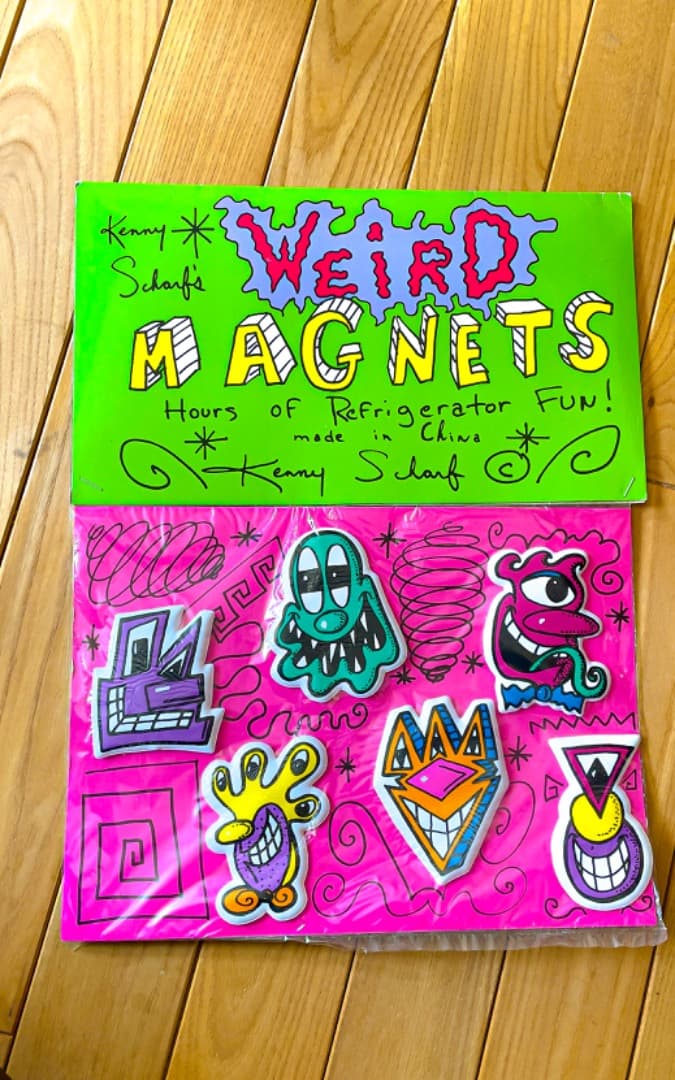 Kenny
Scharf's
WEiRD
MAGNETS
Hours of Refrigerator FUN!
made in China
Kenny Scharf ©